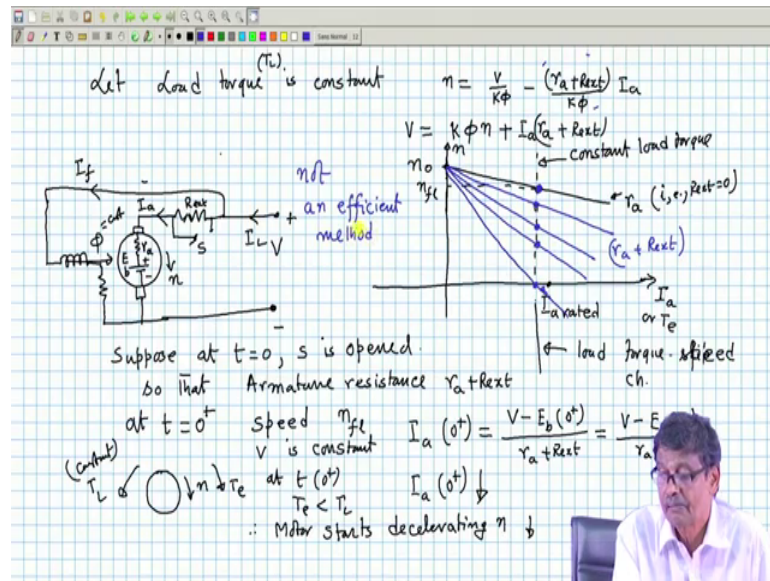 Sans Normal 12
Let Load torque (TL) is constant
n = V/Kϕ - (ra+Rext)/Kϕ Ia
V = Kϕn + Ia(ra + Rext)
constant load torque
n
n0
nfl
ra (i,e, Rext=0)
(ra + Rext)
Ia rated
Ia
or Te
load torque-speed
ch.
If
Ia
Rext
S
IL
V
+
-
ϕ = cont
ra
E
b
+
-
n
not
an efficient
method
Suppose at t=0, S is opened.
so that Armature resistance ra+Rext
at t=0+ speed nfl
V is constant
Ia(0+) = V - Eb(0+) / ra + Rext = V - E / ra
(constant)
TL
n
Te
at t(0+)
Te < TL
Ia(0+) ↓
∴ Motor starts decelerating n ↓